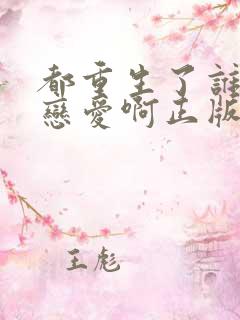 都重生了誰
戀愛啊正版
王彪